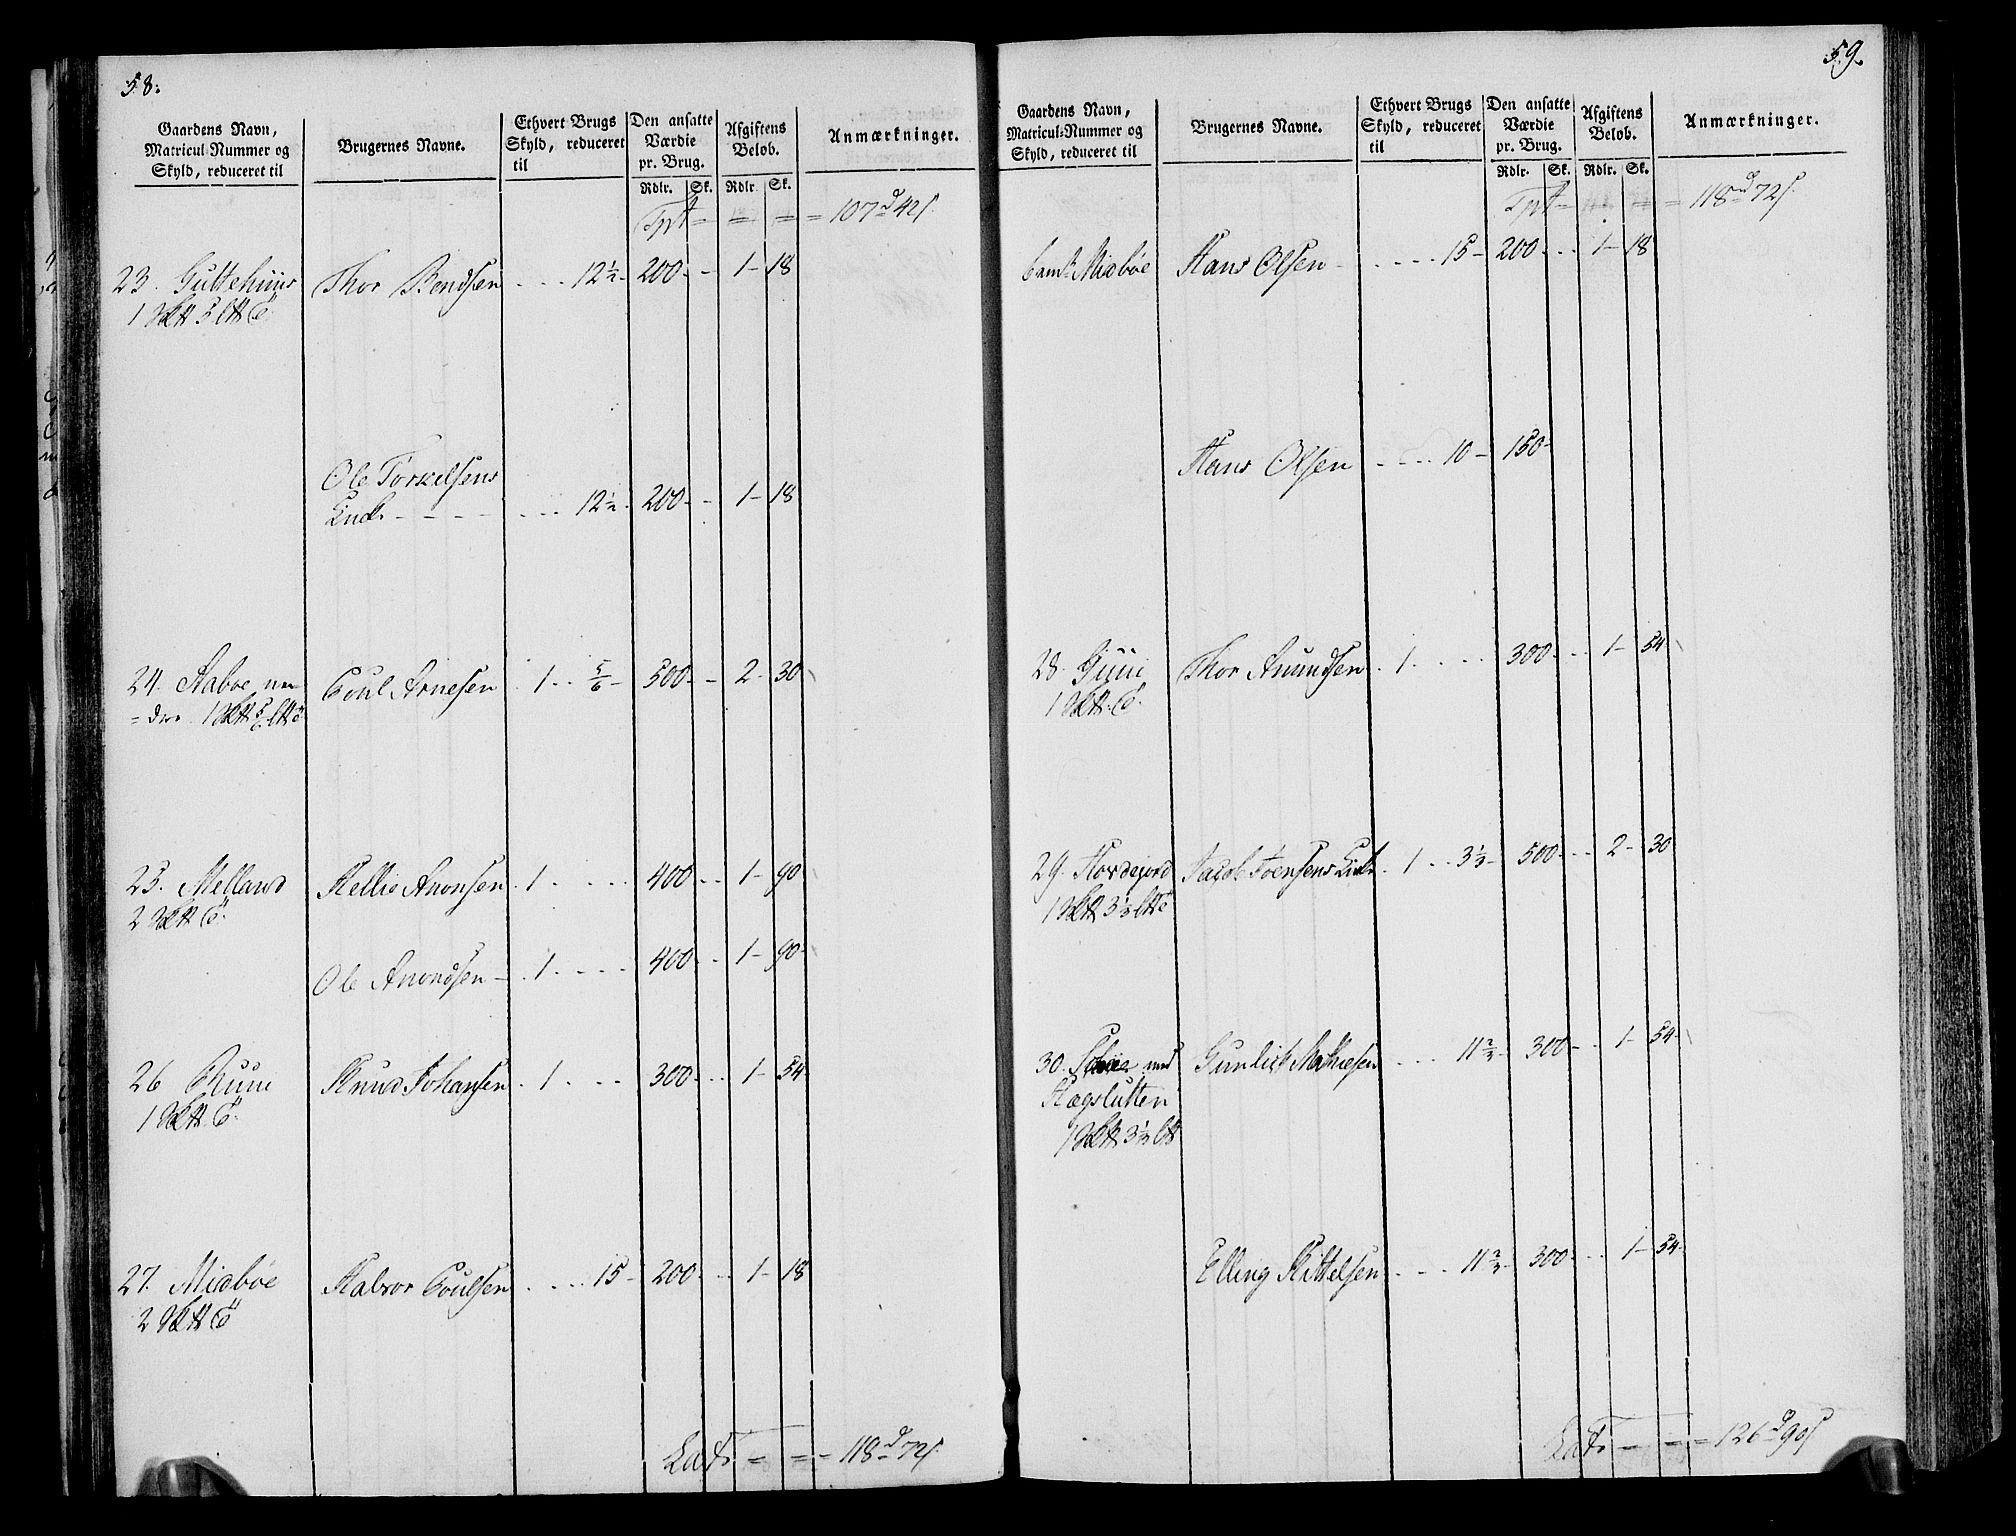 58.
Gaardens Navn,
Matricul Nummer og
Skyld, reduceret til
Brugernes Navne.
Ethvert Brugs
Skyld, reduceret
til
Den ansatte
Værdie
pr. Brug.
Rdlr. Sk.
Afgiftens
Beløb.
Rdlr. Sk.
Anmærkninger.
Tpt = = = = 107 d 42 s.
23. Guttehuus Thor Bendsen . . . 12 1/2 - 200 - - 1 - 18
Ole Torkelsens
Enke - - - - . . . 12 1/2 - 200 - - 1 - 18
24. Aaboe ne= Poul Arnesen . 1 . . 5/6 - 500 - - 2 - 30
=dre
25. Melland Kellie Anonsen . 1 . . . . 400 - - 1 - 90
Ole Anondsen - . 1 . . . . 400 - - 1 - 90 -
26 Ruue Knud Johansen . 1 . . . 300 - - 1 - 54
27. Midbøe Halvor Poulsen . . . . 15 - 200 - - 1 - 18
Lats = = - 118 d 72 s.
59.
Gaardens Navn,
Matricul-Nummer og
Skyld, reduceret til
Brugernes Navne.
Ethvert Brugs
Skyld, reduceret
til
Den ansatte
Værdie
pr. Brug.
Rdlr. Sk.
Afgiftens
Beløb.
Rdlr. Sk.
Anmærkninger.
Tpt = = = 118 d 72 s.
Midbøe Hans Olsen - . . . . 15 - 200 - . . 1 - 18
Hans Olsen - - . . 10 - 150 -
28. Thor Anundsen . 1 . . . . 300 - . . 1 - 54
29. Hovdejord Jacob Joensens Enke . 1 . . 3 1/3 - 500 - - . 2 - 30
30. med Gunlick Mathiesen . . . . 11 2/3 - 300 - . . 1 - 54 -
Hægslutten
Elling Kittelsen . . . . 11 2/3 - 300 - . . 1 - 54 -
Lats - = = 126 d 90 s